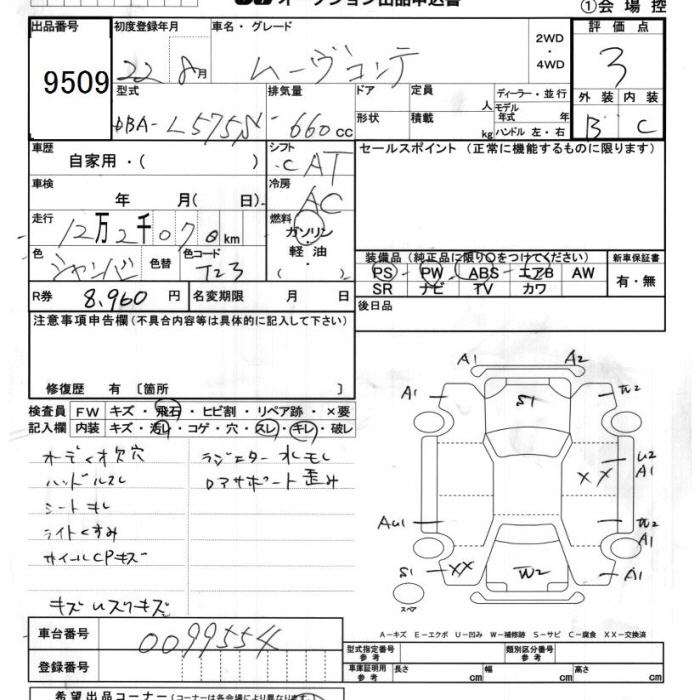 オークション出品申込書
①会場控
出品番号
9509
初度登録年月
22 8月
車名・グレード
ムーヴコンテ
2WD
・
4WD
評価点
3
外装 内装
B C
型式
DBA-L575N
排気量
660 cc
ドア
形状
定員
人
積載
kg
ディーラー・並行
モデル年式 年
ハンドル 左・右
車歴
自家用・( )
シフト
CAT
セールスポイント (正常に機能するものに限ります)
車検
年 月( 日)
冷房
AC
走行
12万2千070 km
燃料
ガソリン
軽油
・
( )
色
シャンパン
色替
色コード
T23
R券 8,960 円
名変期限 月 日
装備品 (純正品に限り○をつけてください)
PS・PW・ABS・エアB AW
SR ナビ TV カワ
新車保証書
有・無
後日品
注意事項申告欄 (不具合内容等は具体的に記入して下さい)
修復歴 有 〔箇所 〕
検査員記入欄
FW キズ・飛石・ヒビ割・リペア跡・×要
内装 キズ・汚れ・コゲ・穴・スレ・キレ・破レ
オーディオ欠穴
ハンドルスレ
シートキレ
ライトくすみ
ホイールCPキズ
キズ
ラジエター水モレ
ロアサポート歪み
A1 A2
A1 S1 W2
U2
A1
XX
AU1 W2
A1
S1 XX W2 A1
スペア
A-キズ E-エクボ U-凹み W-補修跡 S-サビ C-腐食 XX-交換済
車台番号
0099554
登録番号
型式指定番号 参考
類別区分番号 参考
車庫証明用 参考
長さ cm
幅 cm
高さ cm
希望出品コーナー